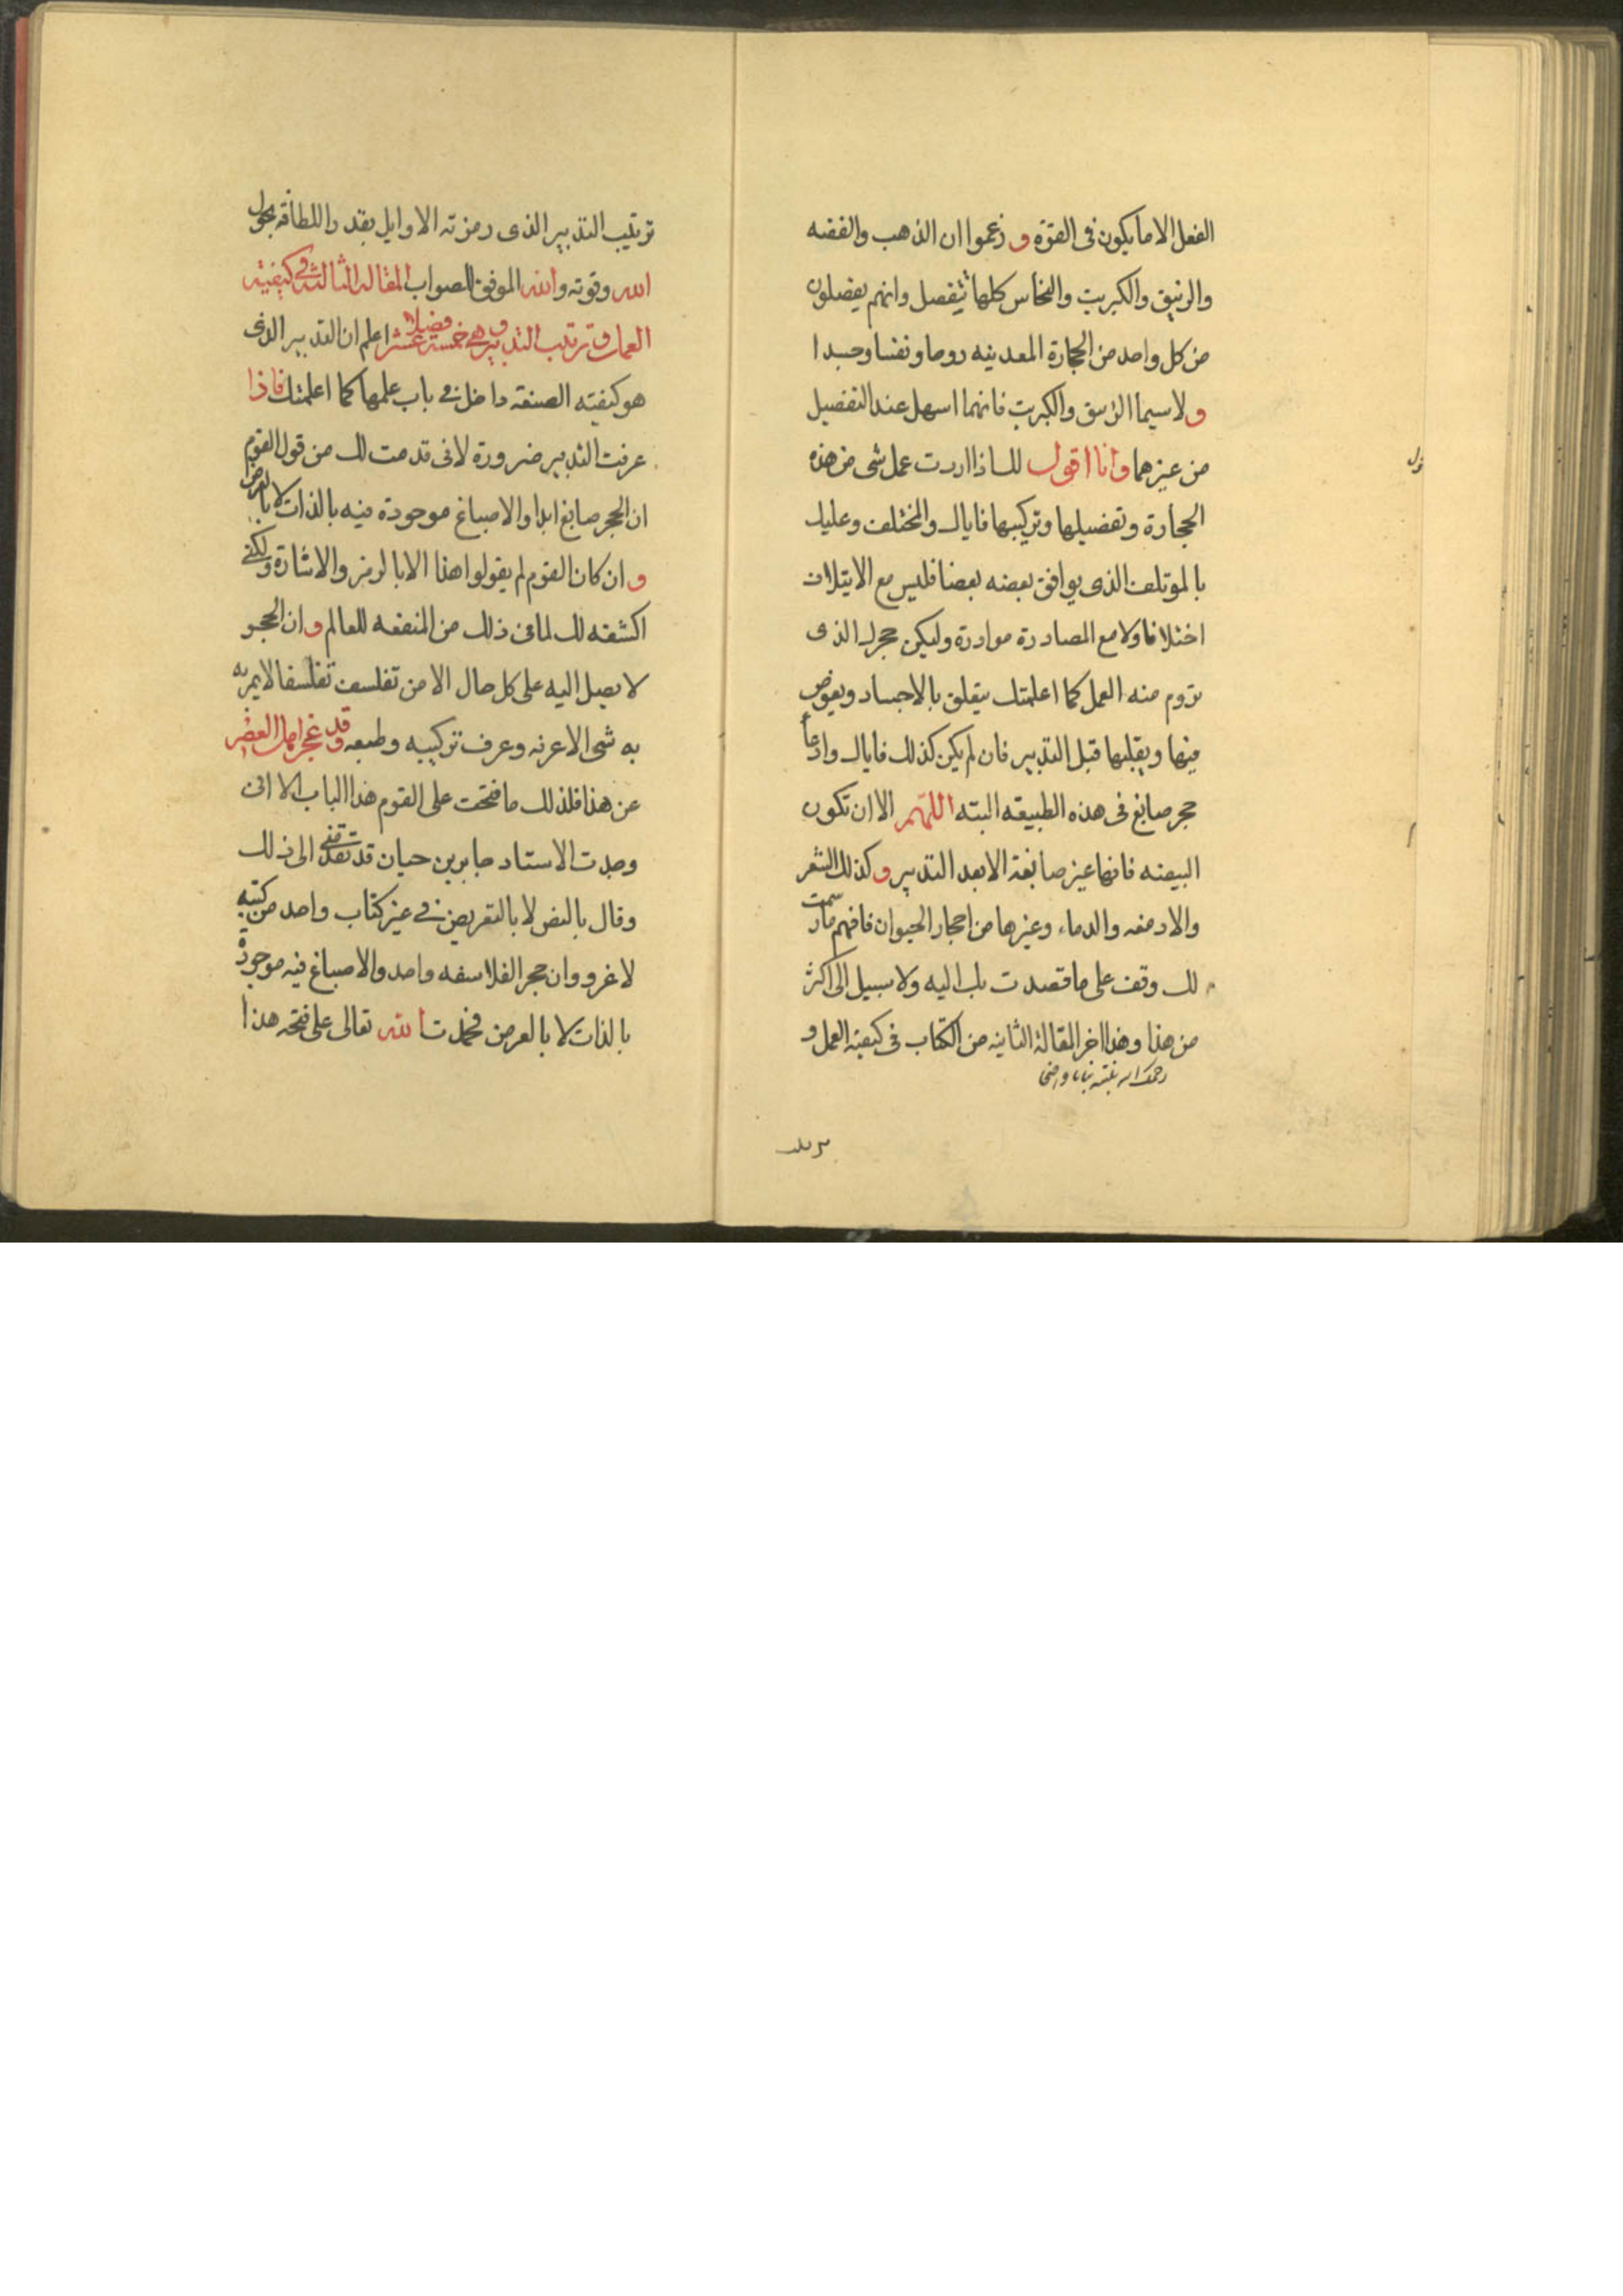 الفعل الا ما يكون فى القوة و زعموا ان الذهب والفضه
والزيبق والكبريت والنحاس كلها تنفصل وانهم يفصلون
من كل واحد من الحجارة المعدنيه روحا ونفسا وجسدا
ولا سيما الزيبق والكبريت فانهما اسهل عند التفصيل
من غيرهما وانا اقول لك اذا اردت عمل شى من هذه
الحجارة وتفصيلها وتركيبها فاياك والمختلف وعليك
بالموتلف الذى يوافق بعضه بعضا فليس مع الايتلاف
اختلافا ولا مع المصادرة مواردة وليكن حجرك الذى
تروم منه العمل كما اعلمتك يتعلق بالاجساد ويغوص
فيها ويقلبها قبل التدبير فان لم يكن كذلك فاياك وادعا
حجر صابغ فى هذه الطبيعه البته اللهم الا ان تكون
البيضه فانها غير صابغة الا بعد التدبير وكذلك الشعر
والادمغه والدماء وغيرها من احجار الحيوان فافهم ما رسمت
لك وقف على ما قصدت بك اليه ولا سبيل الى اكثر
من هذا وهذا اخر المقالة الثانيه من الكتاب فى كيفية العمل و
ترتيب التدبير الذى رمزته الاوايل بقدر اللطاقه بحول
الله وقوته والله الموفق للصواب المقالة الثالثة فى كيفية
العمل وترتيب التدبير وهى خمسة عشر فصلا اعلم ان التدبير الذى
هو كيفية الصنعة داخل فى باب علمها كما اعلمتك فاذا
عرفت التدبير ضرورة لانى قدمت لك من قول القوم
ان الحجر صابغ ابدا والاصباغ موجودة فيه بالذات لا بالعرض
و ان كان القوم لم يقولوا هذا الا بالرمز والاشارة ولكنى
اكشفه لك لما فى ذلك من المنفعه للعالم وان الحجر
لا يصل اليه على كل حال الا من تفلسف تفلسفا لا يمر به
به شى الا عرفه وعرف تركيبه وطبعه وقد عجز اهل العصر
عن هذا فلذلك ما فتحت على القوم هذا الباب الا انى
وجدت الاستاد جابر بن حيان قد تقدمنى الى ذلك
وقال بالنص لا بالتعريض فى غير كتاب واحد من كتبه
لا غرو وان حجر الفلاسفه واحد والاصباغ فيه موجودة
بالذات لا بالعرض فحمدت الله تعالى على فتحه هذا